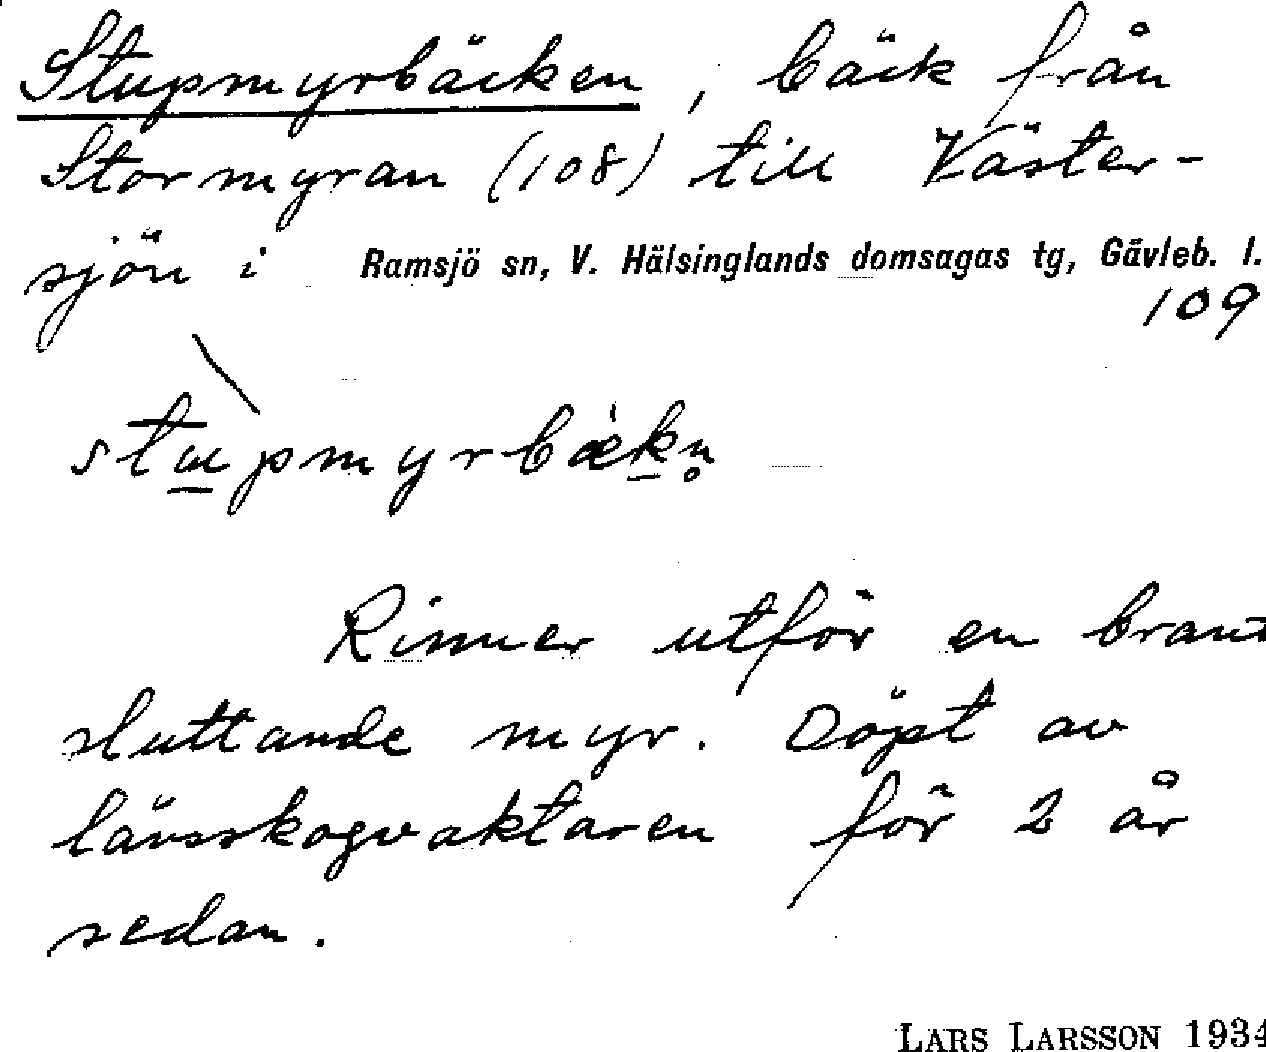 Stupmyrbäcken, bäck från
Stormyran (108) till Väster-
sjön i Ramsjö sn, V. Hälsinglands domsagas tg, Gävleb. l.
109
stupmyrbækn̥
Rinner utför en brant
sluttande myr. Döpt av
länsskogvaktaren för 2 år
sedan.
LARS LARSSON 1934